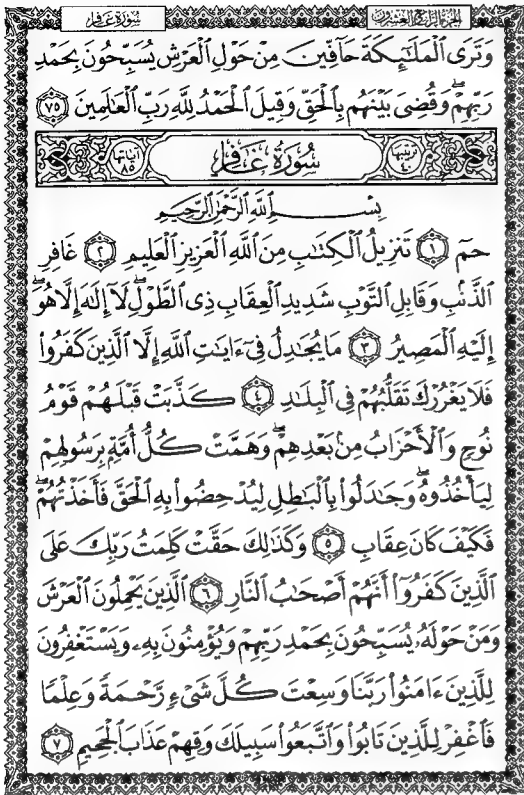 سُورَةُ غَافِرٍ الجُزءُ الرَّابِعُ وَالعِشْرُون
وَتَرَى الْمَلَٰٓئِكَةَ حَآفِّينَ مِنْ حَوْلِ الْعَرْشِ يُسَبِّحُونَ بِحَمْدِ
رَبِّهِمْ ۖ وَقُضِىَ بَيْنَهُم بِالْحَقِّ وَقِيلَ الْحَمْدُ لِلَّهِ رَبِّ الْعَالَمِينَ ٧٥
ترتيبها ٤٠ سُورَةُ غَافِرٍ آياتها ٨٥
بِسْمِ اللَّهِ الرَّحْمَٰنِ الرَّحِيمِ
حمٓ ١ تَنزِيلُ الْكِتَٰبِ مِنَ اللَّهِ الْعَزِيزِ الْعَلِيمِ ٢ غَافِرِ
الذَّنۢبِ وَقَابِلِ التَّوْبِ شَدِيدِ الْعِقَابِ ذِى الطَّوْلِ ۖ لَآ إِلَٰهَ إِلَّا هُوَ ۖ
إِلَيْهِ الْمَصِيرُ ٣ مَا يُجَٰدِلُ فِىٓ ءَايَٰتِ اللَّهِ إِلَّا الَّذِينَ كَفَرُوا۟
فَلَا يَغْرُرْكَ تَقَلُّبُهُمْ فِى الْبِلَٰدِ ٤ كَذَّبَتْ قَبْلَهُمْ قَوْمُ
نُوحٍ وَالْأَحْزَابُ مِنۢ بَعْدِهِمْ ۖ وَهَمَّتْ كُلُّ أُمَّةٍۭ بِرَسُولِهِمْ
لِيَأْخُذُوهُ ۖ وَجَٰدَلُوا۟ بِالْبَٰطِلِ لِيُدْحِضُوا۟ بِهِ الْحَقَّ فَأَخَذْتُهُمْ ۖ
فَكَيْفَ كَانَ عِقَابِ ٥ وَكَذَٰلِكَ حَقَّتْ كَلِمَتُ رَبِّكَ عَلَى
الَّذِينَ كَفَرُوٓا۟ أَنَّهُمْ أَصْحَٰبُ النَّارِ ٦ الَّذِينَ يَحْمِلُونَ الْعَرْشَ
وَمَنْ حَوْلَهُۥ يُسَبِّحُونَ بِحَمْدِ رَبِّهِمْ وَيُؤْمِنُونَ بِهِۦ وَيَسْتَغْفِرُونَ
لِلَّذِينَ ءَامَنُوا۟ رَبَّنَا وَسِعْتَ كُلَّ شَىْءٍ رَّحْمَةً وَعِلْمًا
فَاغْفِرْ لِلَّذِينَ تَابُوا۟ وَاتَّبَعُوا۟ سَبِيلَكَ وَقِهِمْ عَذَابَ الْجَحِيمِ ٧